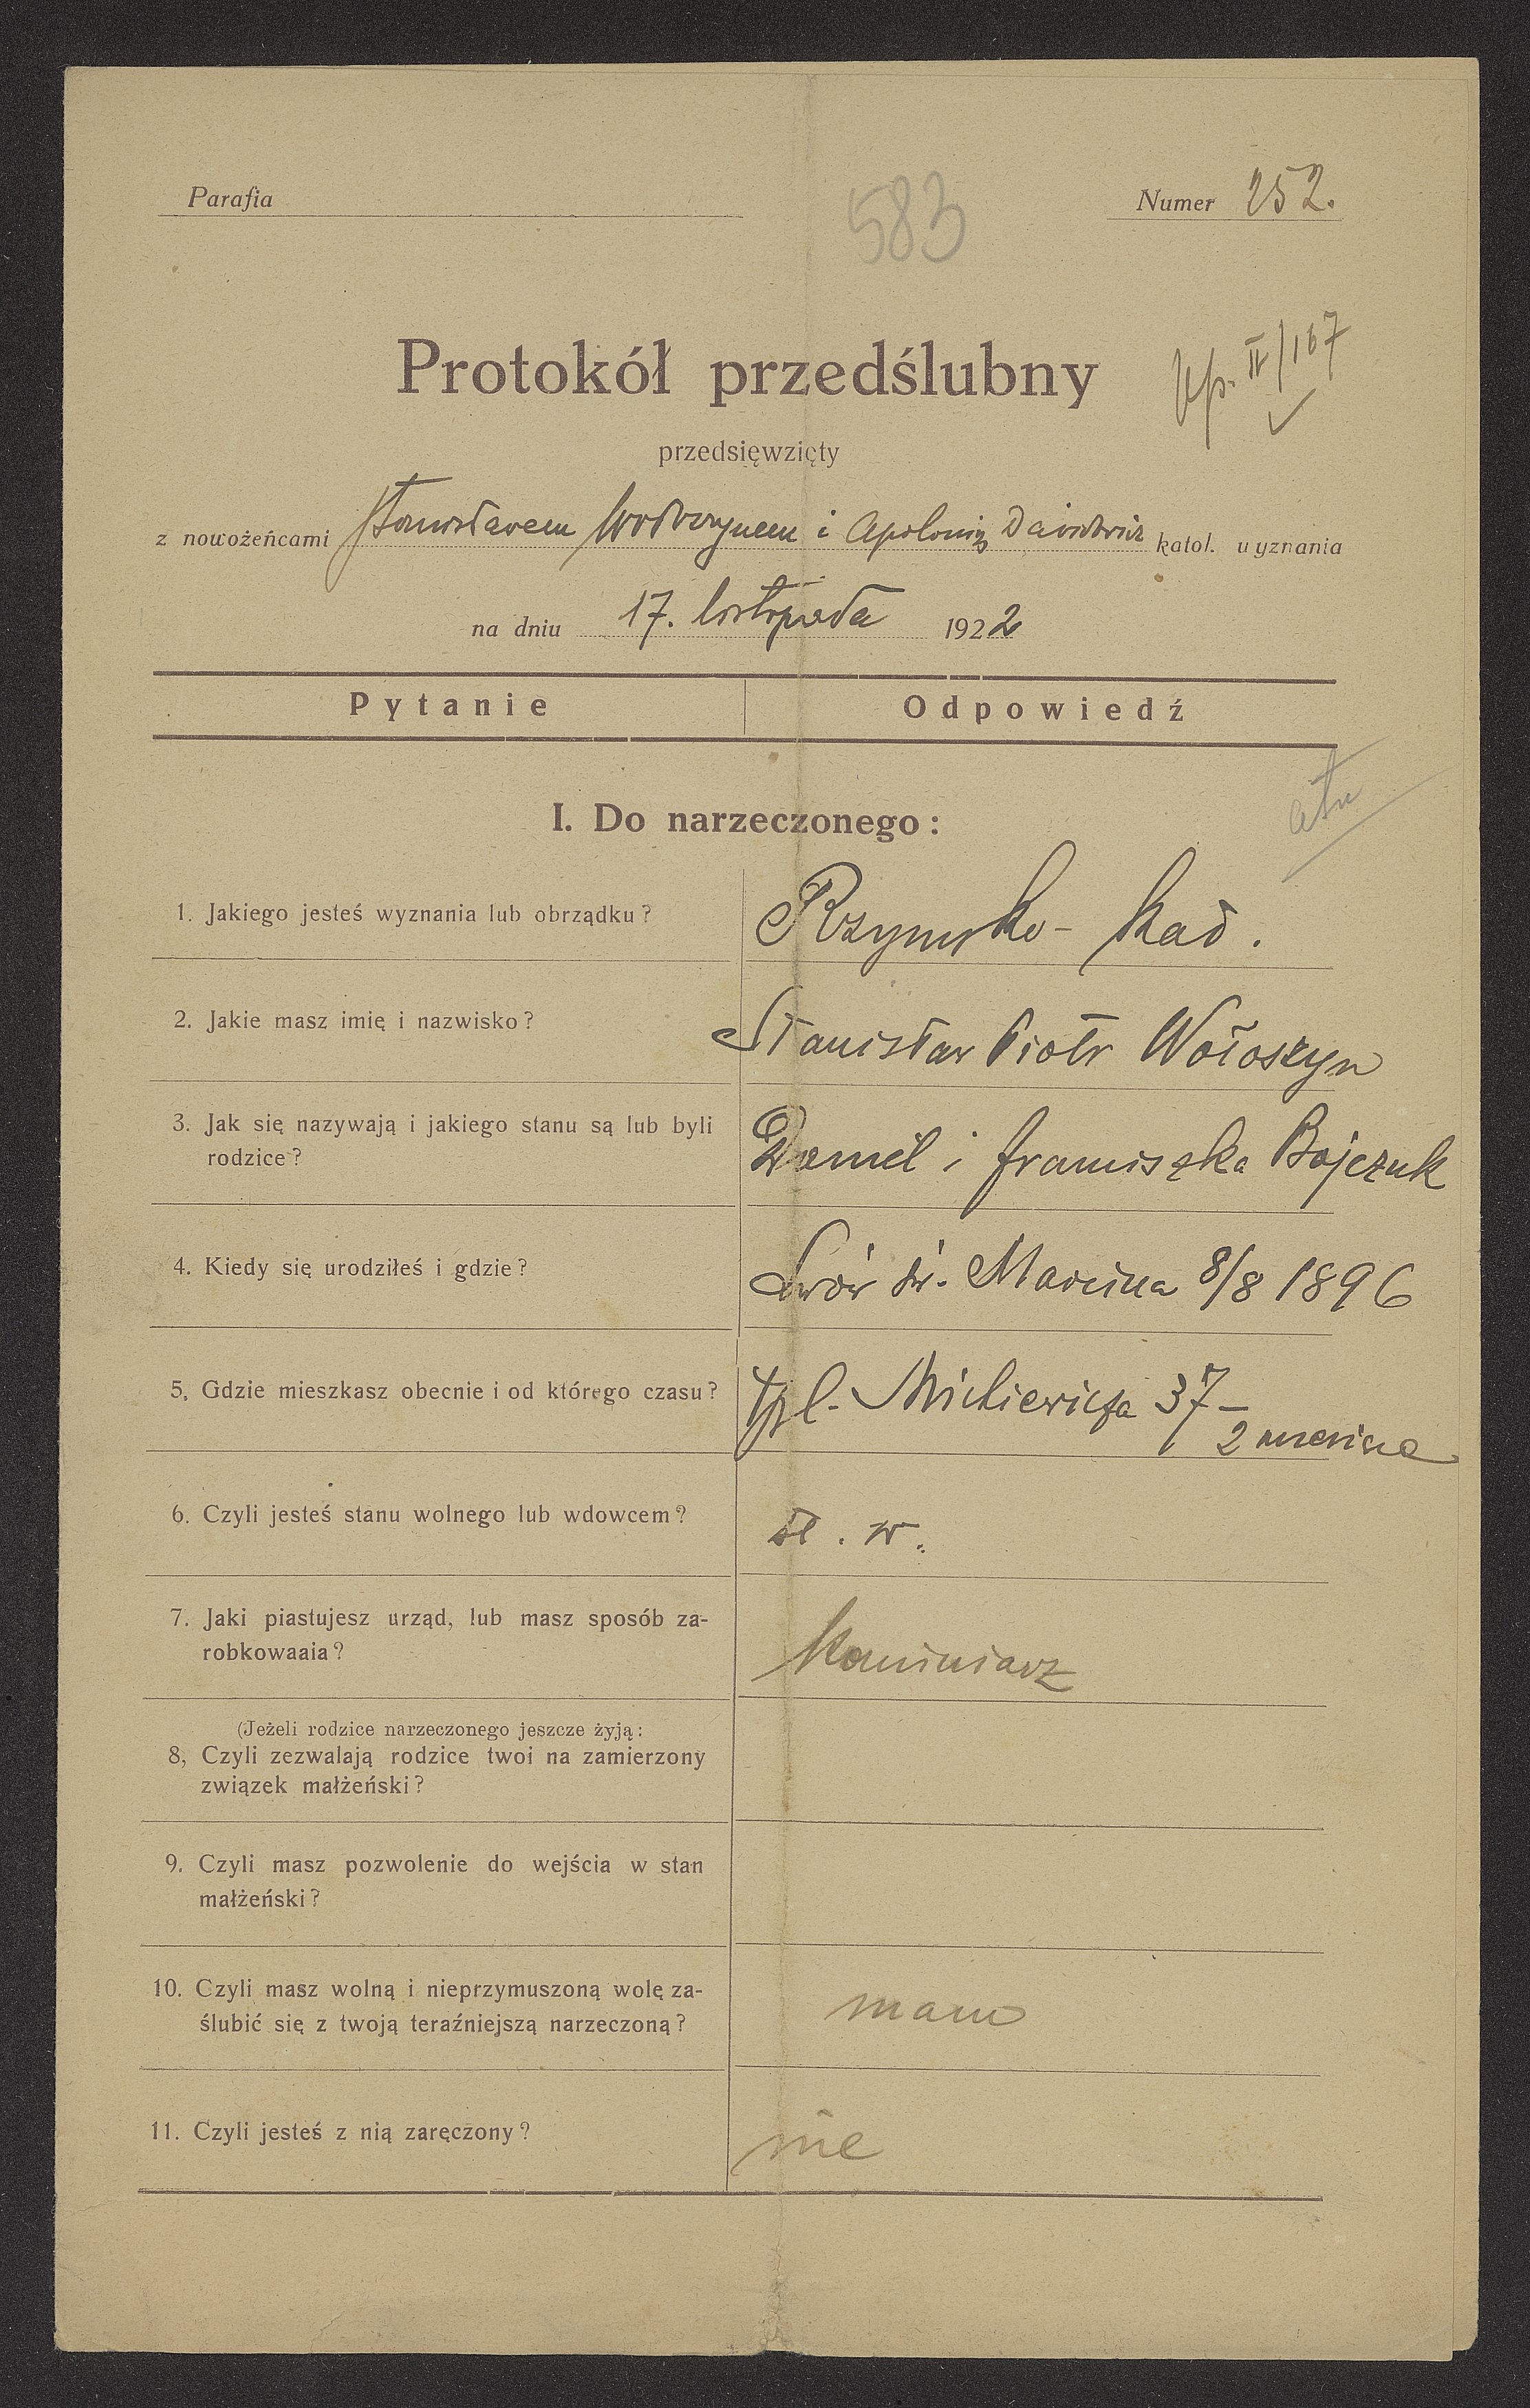 Parafia
583
Numer 252.
Protokół przedślubny
II/167
przedsięwzięty
z nowożeńcami Stanisławem Wołoszynem i Apolonią katol. wyznania
na dniu 17. listopada 1922
Pytanie Odpowiedź
I. Do narzeczonego:
1. Jakiego jesteś wyznania lub obrządku? Rzymsko-kat.
2. Jakie masz imię i nazwisko? Stanisław Piotr Wołoszyn
3. Jak się nazywają i jakiego stanu są lub byli
rodzice? Daniel i Franciszka Bojczuk
4. Kiedy się urodziłeś i gdzie? Lwów św. Marcina 8/8 1896
5, Gdzie mieszkasz obecnie i od którego czasu? pl. Mickiewicza 37 –
2
6. Czyli jesteś stanu wolnego lub wdowcem? st. w.
7. Jaki piastujesz urząd, lub masz sposób za-
robkowaaia? Kominiarz
(Jeżeli rodzice narzeczonego jeszcze żyją:
8, Czyli zezwalają rodzice twoi na zamierzony
związek małżeński?
9. Czyli masz pozwolenie do wejścia w stan
małżeński?
10. Czyli masz wolną i nieprzymuszoną wolę za-
ślubić się z twoją teraźniejszą narzeczoną? mam
11. Czyli jesteś z nią zaręczony? nie